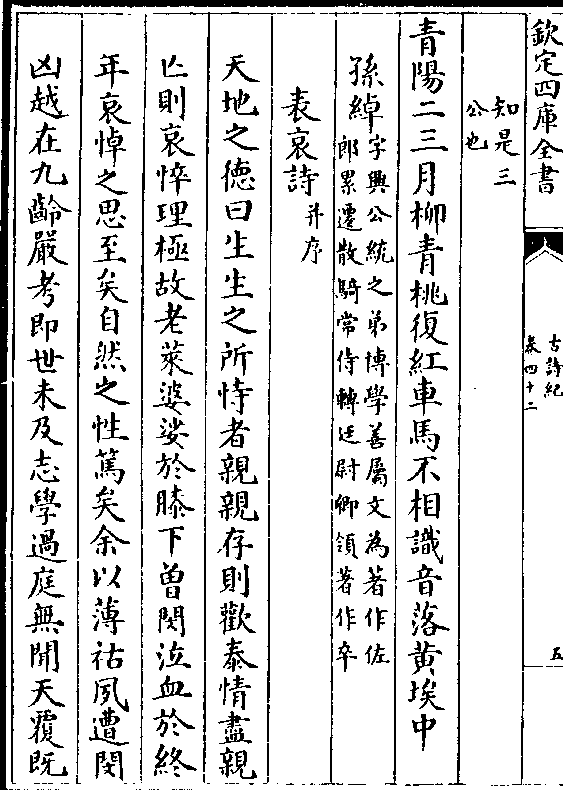 欽定四庫全書
古詩紀
卷四十二
五
知是三
公也
青陽二三月柳青桃復紅車馬不相識音落黃埃中
孫綽字興公統之弟博學善屬文為著作佐
郎累遷散騎常侍轉廷尉卿領著作卒
表哀詩并序
天地之德曰生生之所恃者親親存則歡泰情盡親
亡則哀悴理極故老萊婆娑於膝下曽閔泣血於終
年哀悼之思至矣自然之性篤矣余以薄祜夙遭閔
凶越在九齡嚴考即世未及志學過庭無聞天覆既